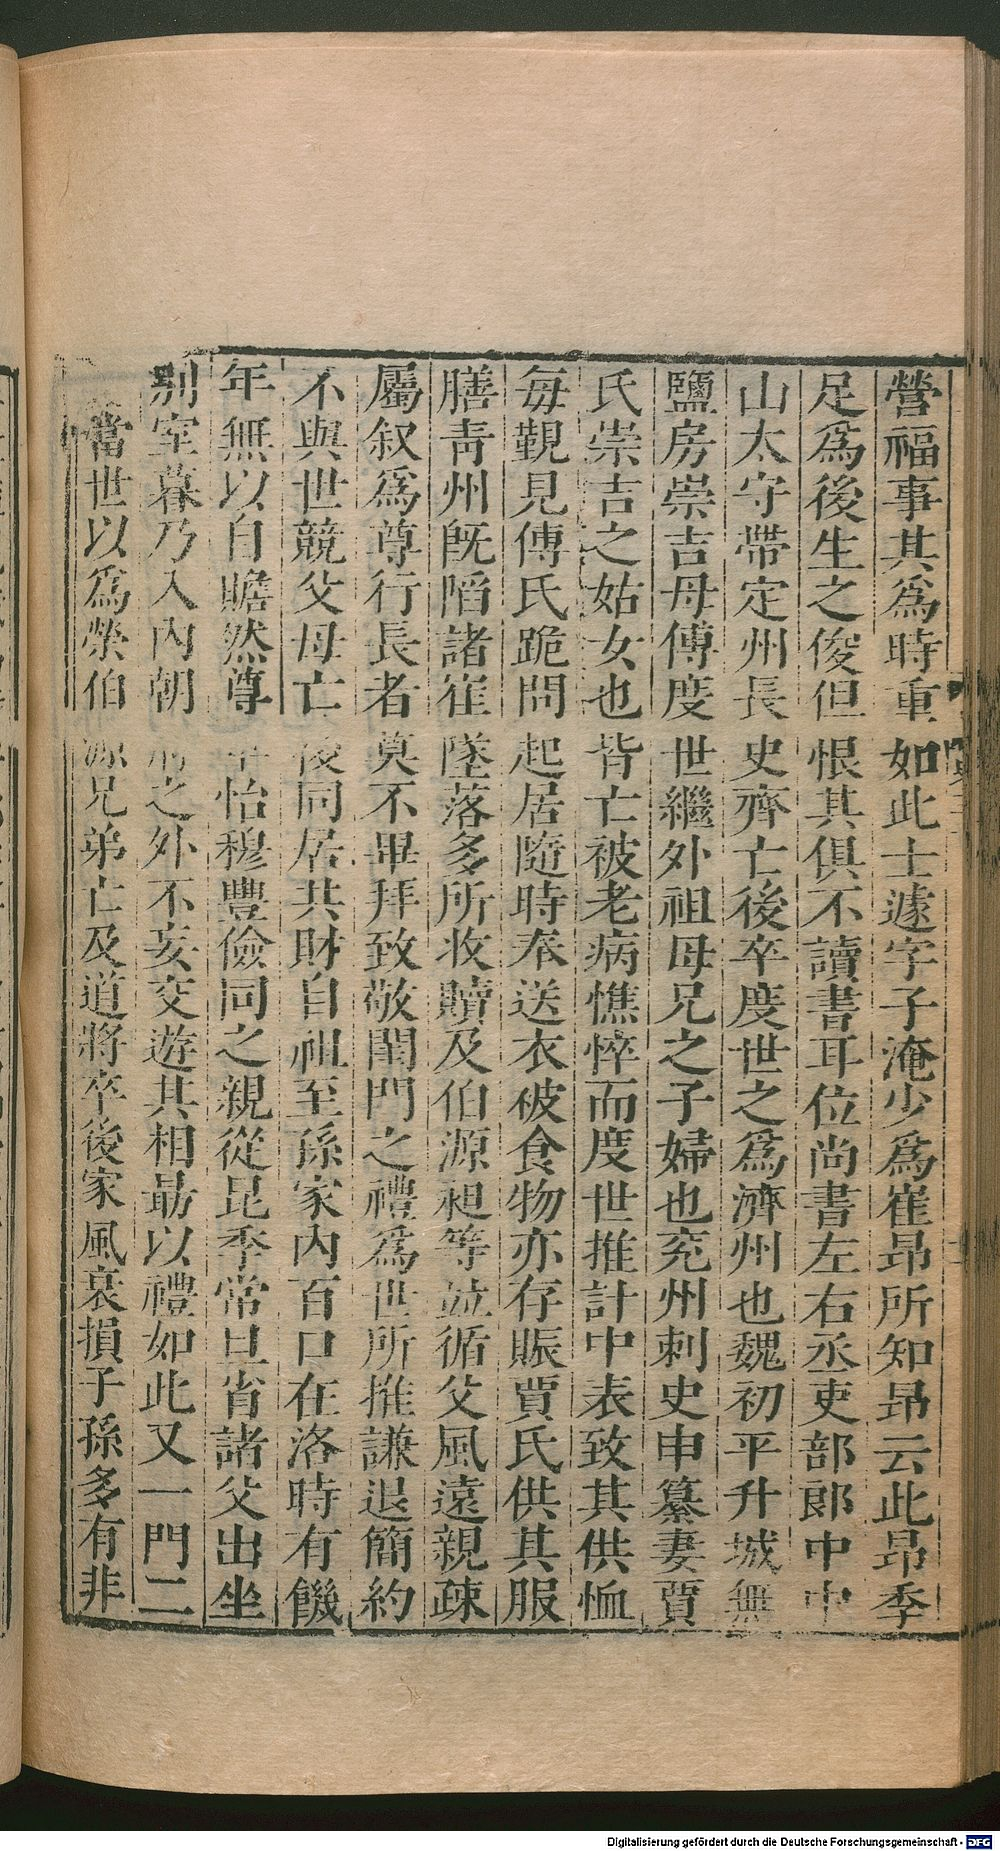 營福事其爲時重如此士遽字子淹少爲崔昂所知昂云此昂季
足爲後生之俊但恨其俱不讀書耳位尚書左右丞吏部郎中中
山太守帶定州長史齊亡後卒度世之爲濟州也魏初平升城無
鹽房崇吉母傅度世繼外祖母兄之子婦也兖州刺史申纂妻賈
氏崇吉之姑女也皆亡被老病憔悴而度世推計中表致其供恤
每覲見傅氏跪問起居隨時奉送衣被食物亦存賑賈氏供其服
膳青州旣陷諸崔墜落多所收贖及伯源昶等並循父風遠親疎
屬叙爲尊行長者莫不畢拜致敬閨門之禮爲世所推謙退簡約
不與世競父母亡後同居共財自祖至孫家內百口在洛時有饑
年無以自贍然尊卑怡穆豐儉同之親從昆季常旦省諸父出坐
别室暮乃入內朝府之外不妄交遊其相勗以禮如此又一門二
當世以爲榮伯源兄弟亡及道將卒後家風衰損子孫多有非
Digitalisierung gefördert durch die Deutsche Forschungsgemeinschaft - DFG